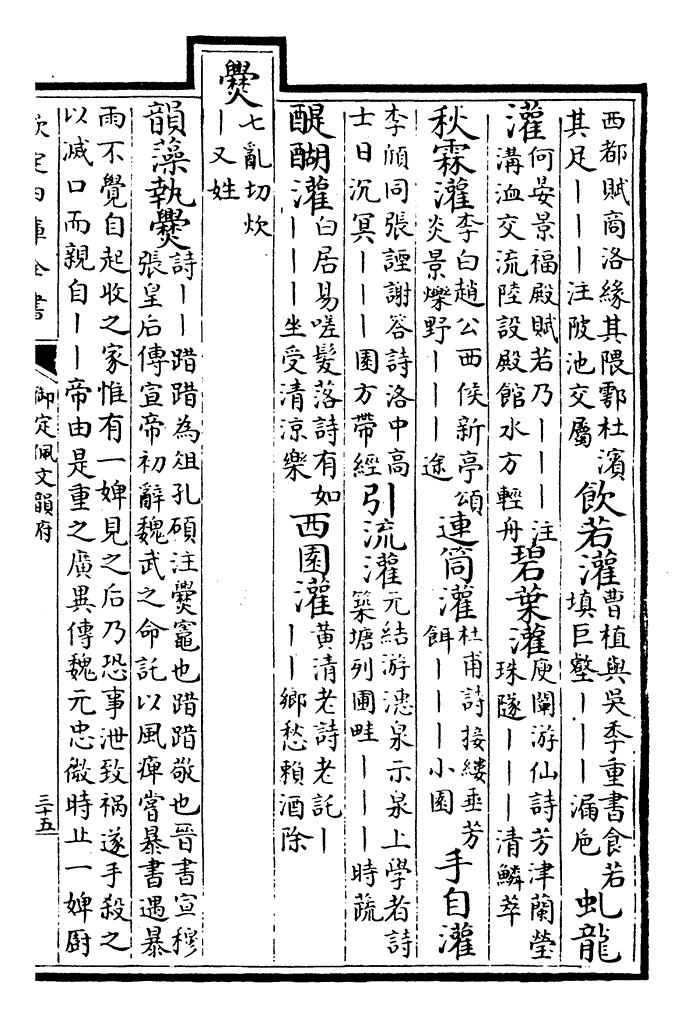 西都賦商洛緣其隈鄠杜濱其足丨丨丨注陂池交屬飲若灌曹植與吳季重書食若填巨壑丨丨丨漏巵虬龍
灌何晏景福殿賦若乃丨丨丨注溝洫交流陸設殿館水方輕舟碧葉灌庾闡游仙詩芳津蘭瑩珠隧丨丨丨清鱗萃
秋霖灌李白趙公西候新亭頌炎景爍野丨丨丨途連筒灌杜甫詩接縷垂芳餌丨丨丨小園手自灌
李頎同張諲謝答詩洛中高士日沉冥丨丨丨園方帶經引流灌元結游潓泉示泉上學者詩築塘列圃畦丨丨丨時蔬
醍醐灌白居易嗟髮落詩有如丨丨丨坐受清涼樂西園灌黃清老詩老託丨丨丨鄉愁賴酒除
爨七亂切炊丨又姓
韻藻執爨詩丨丨踖踖為俎孔碩注爨竈也踖踖敬也晉書宣穆張皇后傳宣帝初辭魏武之命託以風痺嘗暴書遇暴
雨不覺自起收之家惟有一婢見之后乃恐事泄致禍遂手殺之以滅口而親自丨丨帝由是重之廣異傳魏元忠微時止一婢厨
欽定四庫全書
御定佩文韻府
三十五